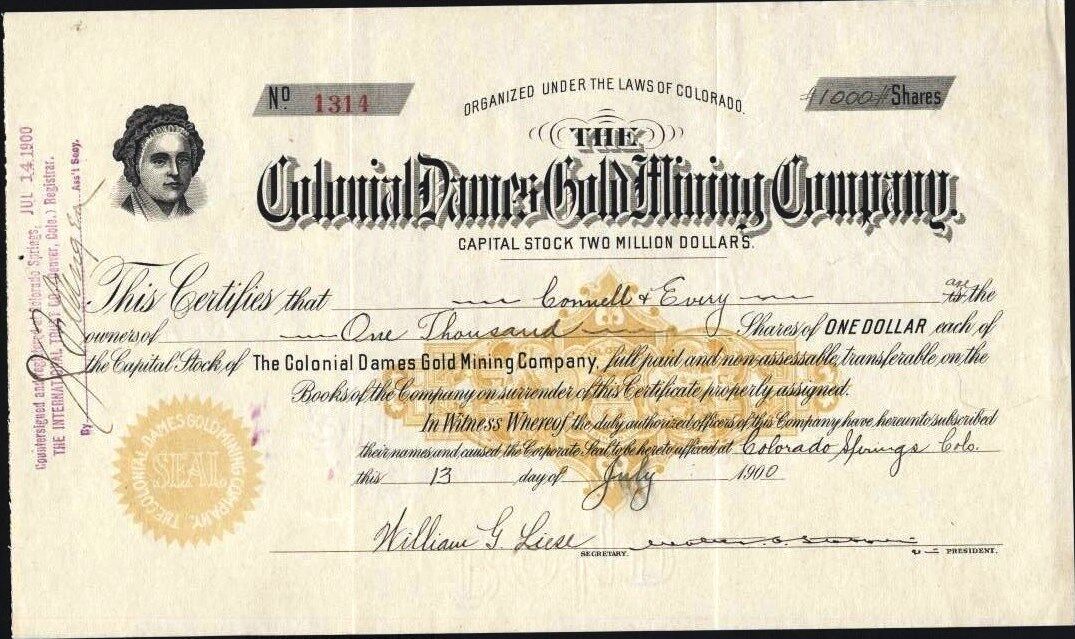 No. 1314
ORGANIZED UNDER THE LAWS OF COLORADO.
1000 Shares
THE
Colonial Dames Gold Mining Company.
CAPITAL STOCK TWO MILLION DOLLARS.
This Certifies that Connell & Every are the
owners of One Thousand Shares of ONE DOLLAR each of
the Capital Stock of The Colonial Dames Gold Mining Company, full paid and non-assessable, transferable, on the
Books of the Company on surrender of this Certificate properly assigned.
In Witness Whereof the duly authorized officers of this Company have hereunto subscribed
their names and caused the Corporate Seal to be hereto affixed at Colorado Springs Colo.
this 13 day of July 1900
William G. Liese SECRETARY. PRESIDENT.
THE COLONIAL DAMES GOLD MINING COMPANY.
SEAL
Countersigned and Colorado Springs, JUL 14 1900
THE INTERNATIONAL TRUST CO. (Denver, Colo.) Registrar.
By Ass't Secy.